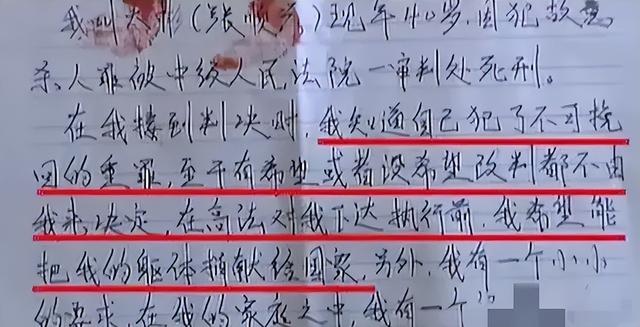 我叫大彬(张顺兴)现年40岁,因犯故意
杀人罪被中级人民法院一审判处死刑。
在我接到判决时,我知道自己犯了不可挽
回的重罪,至于有希望或者没希望改判都不由
我来决定,在高法对我下达执行前,我希望能
把我的躯体捐献给国家,另外,我有一个小小
的要求,在我的家庭之中,我有一个